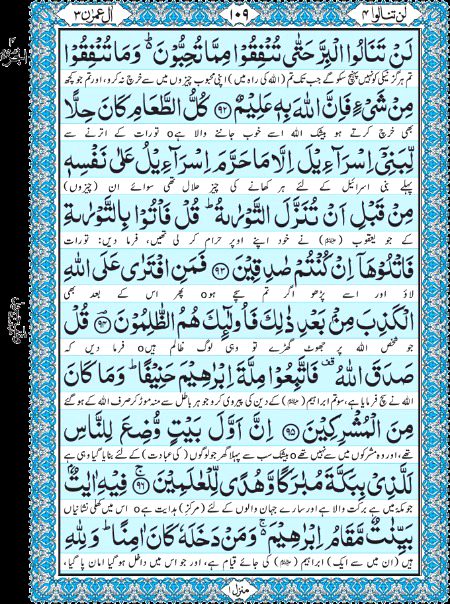 لن تنالوا ۴
۱۰۹
اٰل عمرٰن ۳
لَنْ تَنَالُوا الْبِرَّ حَتّٰى تُنْفِقُوْا مِمَّا تُحِبُّوْنَ ؕ۬ وَمَا تُنْفِقُوْا
تم ہرگز نیکی کو نہیں پہنچ سکو گے جب تک تم (اللہ کی راہ میں) اپنی محبوب چیزوں میں سے خرچ نہ کرو، اور تم جو کچھ
مِنْ شَیْءٍ فَاِنَّ اللّٰهَ بِهٖ عَلِیْمٌ ﴿۹۲﴾ كُلُّ الطَّعَامِ كَانَ حِلًّا
بھی خرچ کرتے ہو بیشک اللہ اسے خوب جاننے والا ہے o تورات کے اترنے سے
لِّبَنِیْۤ اِسْرَآءِیْلَ اِلَّا مَا حَرَّمَ اِسْرَآءِیْلُ عَلٰى نَفْسِهٖ
پہلے بنی اسرائیل کے لئے ہر کھانے کی چیز حلال تھی سوائے ان (چیزوں)
مِنْ قَبْلِ اَنْ تُنَزَّلَ التَّوْرٰىةُ ؕ قُلْ فَاْتُوْا بِالتَّوْرٰىةِ
کے جو یعقوب (علیہ السلام) نے خود اپنے اوپر حرام کر لی تھیں، فرما دیں: تورات
فَاتْلُوْهَاۤ اِنْ كُنْتُمْ صٰدِقِیْنَ ﴿۹۳﴾ فَمَنِ افْتَرٰى عَلَى اللّٰهِ
لاؤ اور اسے پڑھو اگر تم سچے ہو o پھر اس کے بعد بھی
الْكَذِبَ مِنْۢ بَعْدِ ذٰلِكَ فَاُولٰٓىِٕكَ هُمُ الظّٰلِمُوْنَ ﴿۹۴﴾ قُلْ
جو شخص اللہ پر جھوٹ گھڑے تو وہی لوگ ظالم ہیں o فرما دیں کہ
صَدَقَ اللّٰهُ ۫ فَاتَّبِعُوْا مِلَّةَ اِبْرٰهِیْمَ حَنِیْفًا ؕ وَمَا كَانَ
اللہ نے سچ فرمایا ہے، سو تم ابراہیم (علیہ السلام) کے دین کی پیروی کرو جو ہر باطل سے منہ موڑ کر صرف اللہ کے ہو گئے
مِنَ الْمُشْرِكِیْنَ ﴿۹۵﴾ اِنَّ اَوَّلَ بَیْتٍ وُّضِعَ لِلنَّاسِ
تھے، اور وہ مشرکوں میں سے نہیں تھے o بیشک سب سے پہلا گھر جو لوگوں (کی عبادت) کے لئے بنایا گیا وہی ہے
لَلَّذِیْ بِبَكَّةَ مُبٰرَكًا وَّهُدًى لِّلْعٰلَمِیْنَ ﴿۹۶﴾ۚ فِیْهِ اٰیٰتٌۢ
جو مکہ میں ہے برکت والا ہے اور سارے جہان والوں کے لئے (مرکزِ) ہدایت ہے o اس میں کھلی نشانیاں
بَیِّنٰتٌ مَّقَامُ اِبْرٰهِیْمَ ۚ۬ وَمَنْ دَخَلَهٗ كَانَ اٰمِنًا ؕ وَلِلّٰهِ
ہیں (ان میں سے ایک) ابراہیم (علیہ السلام) کی جائے قیام ہے، اور جو اس میں داخل ہو گیا امان پا گیا،
منزل ۱